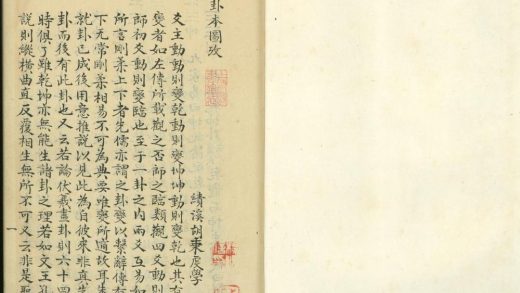 卦本圖攷
績溪胡秉虔學
爻主動動則變乾動則變坤坤動則變乾也其有
變者如左傳所載觀之否師之臨類觀四爻動則
師初爻動則變臨也至于一卦之內而又互易如
所言剛柔上下者先儒亦謂之卦變以繫辭傳有
下无常剛柔相易不可為典要唯變所適故耳朱
就卦已成後用意推說以見此為自彼來非真先
卦而後有此卦也又云若論伏羲畫卦則六十四
時俱了雖乾坤亦無能生諸卦之理若如文王孔
說則縱橫曲直反覆相生無所不可又云非是
一